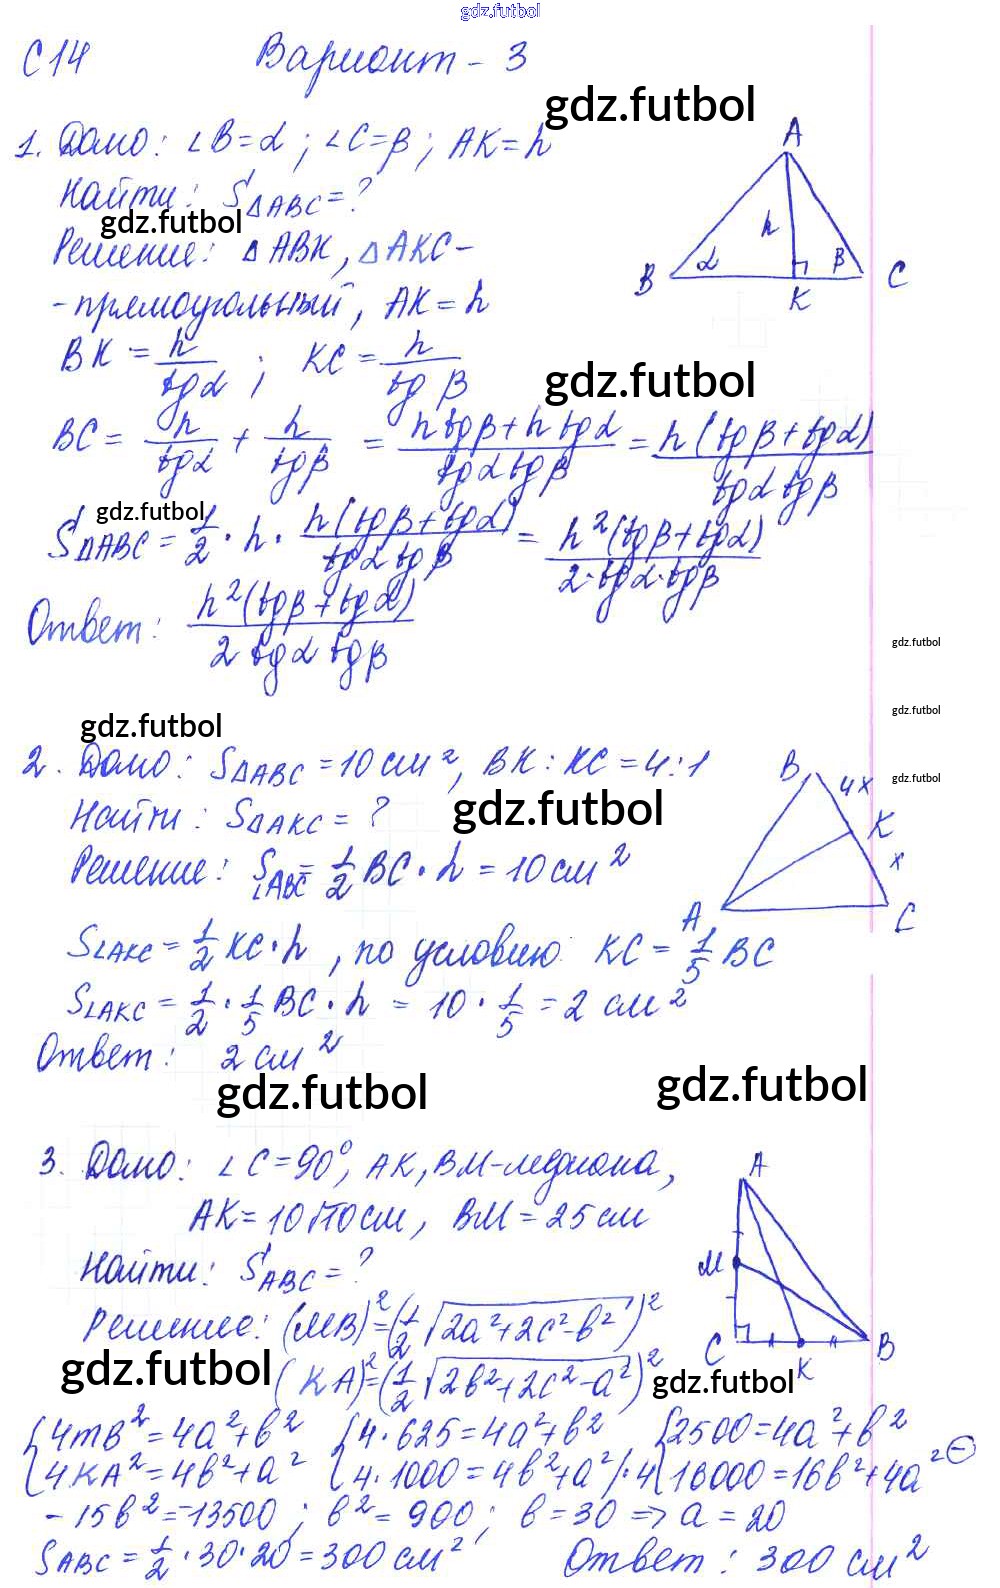 gdz.futbol
С14 Вариант - 3
gdz.futbol
1. Дано: ∠B=α; ∠C=β; AK=h
Найти: S△ABC=?
gdz.futbol
Решение: △ABK, △AKC-
-прямоугольный, AK=h
A
h
α
β
B
K
C
BK = h/tgα ; KC = h/tgβ
gdz.futbol
BC = h/tgα + h/tgβ = (h tgβ + h tgα)/(tgα tgβ) = h(tgβ+tgα)/(tgα tgβ)
gdz.futbol
S△ABC = 1/2 · h · h(tgβ+tgα)/(tgα tgβ) = h²(tgβ+tgα)/(2·tgα·tgβ)
Ответ: h²(tgβ+tgα)/(2 tgα tgβ)
gdz.futbol
gdz.futbol
gdz.futbol
gdz.futbol
2. Дано: S△ABC=10см², BK:KC=4:1
Найти: S△AKC=?
gdz.futbol
Решение: S∠ABC = 1/2 BC·h = 10см²
B
4x
K
x
A
C
S∠AKC = 1/2 KC·h, по условию KC = 1/5 BC
S∠AKC = 1/2 · 1/5 BC · h = 10 · 1/5 = 2 см²
Ответ: 2 см²
gdz.futbol
gdz.futbol
3. Дано: ∠C=90°, AK, BM-медиана,
AK=10√10см, BM=25см
Найти: SABC=?
A
M
C
K
B
Решение: (MB)²=(1/2 √2a²+2c²-b²)²
gdz.futbol
(KA)²=(1/2 √2b²+2c²-a²)²
gdz.futbol
{4mB²=4a²+b² {4·625=4a²+b² {2500=4a²+b²
{4KA²=4b²+a² {4·1000=4b²+a² /·4 {16000=16b²+4a² ⊖
-15b²=-13500; b²=900; b=30 => a=20
SABC = 1/2 · 30·20=300см² Ответ: 300 см²